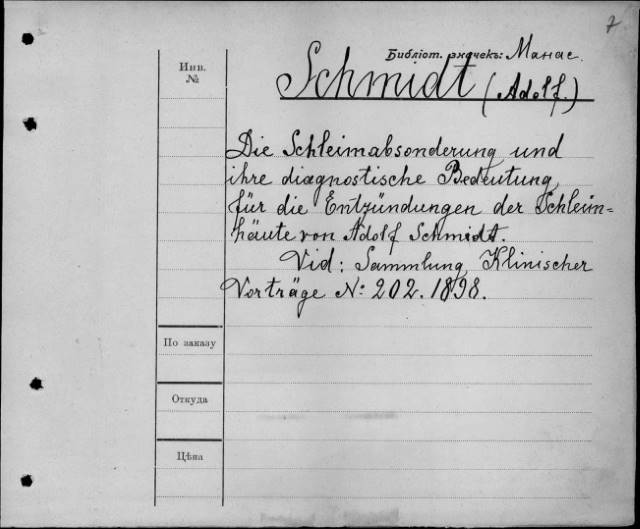 7
Библіот. значекъ: Манас.
Инв.
№
Schmidt (Adolf.)
Die Schleimabsonderung und
ihre diagnostische Bedeutung
für die Entzündungen der Schleim=
häute von Adolf Schmidt.
Vid: Sammlung Klinischer
Vorträge N: 202. 1898.
По заказу
Откуда
Цѣна